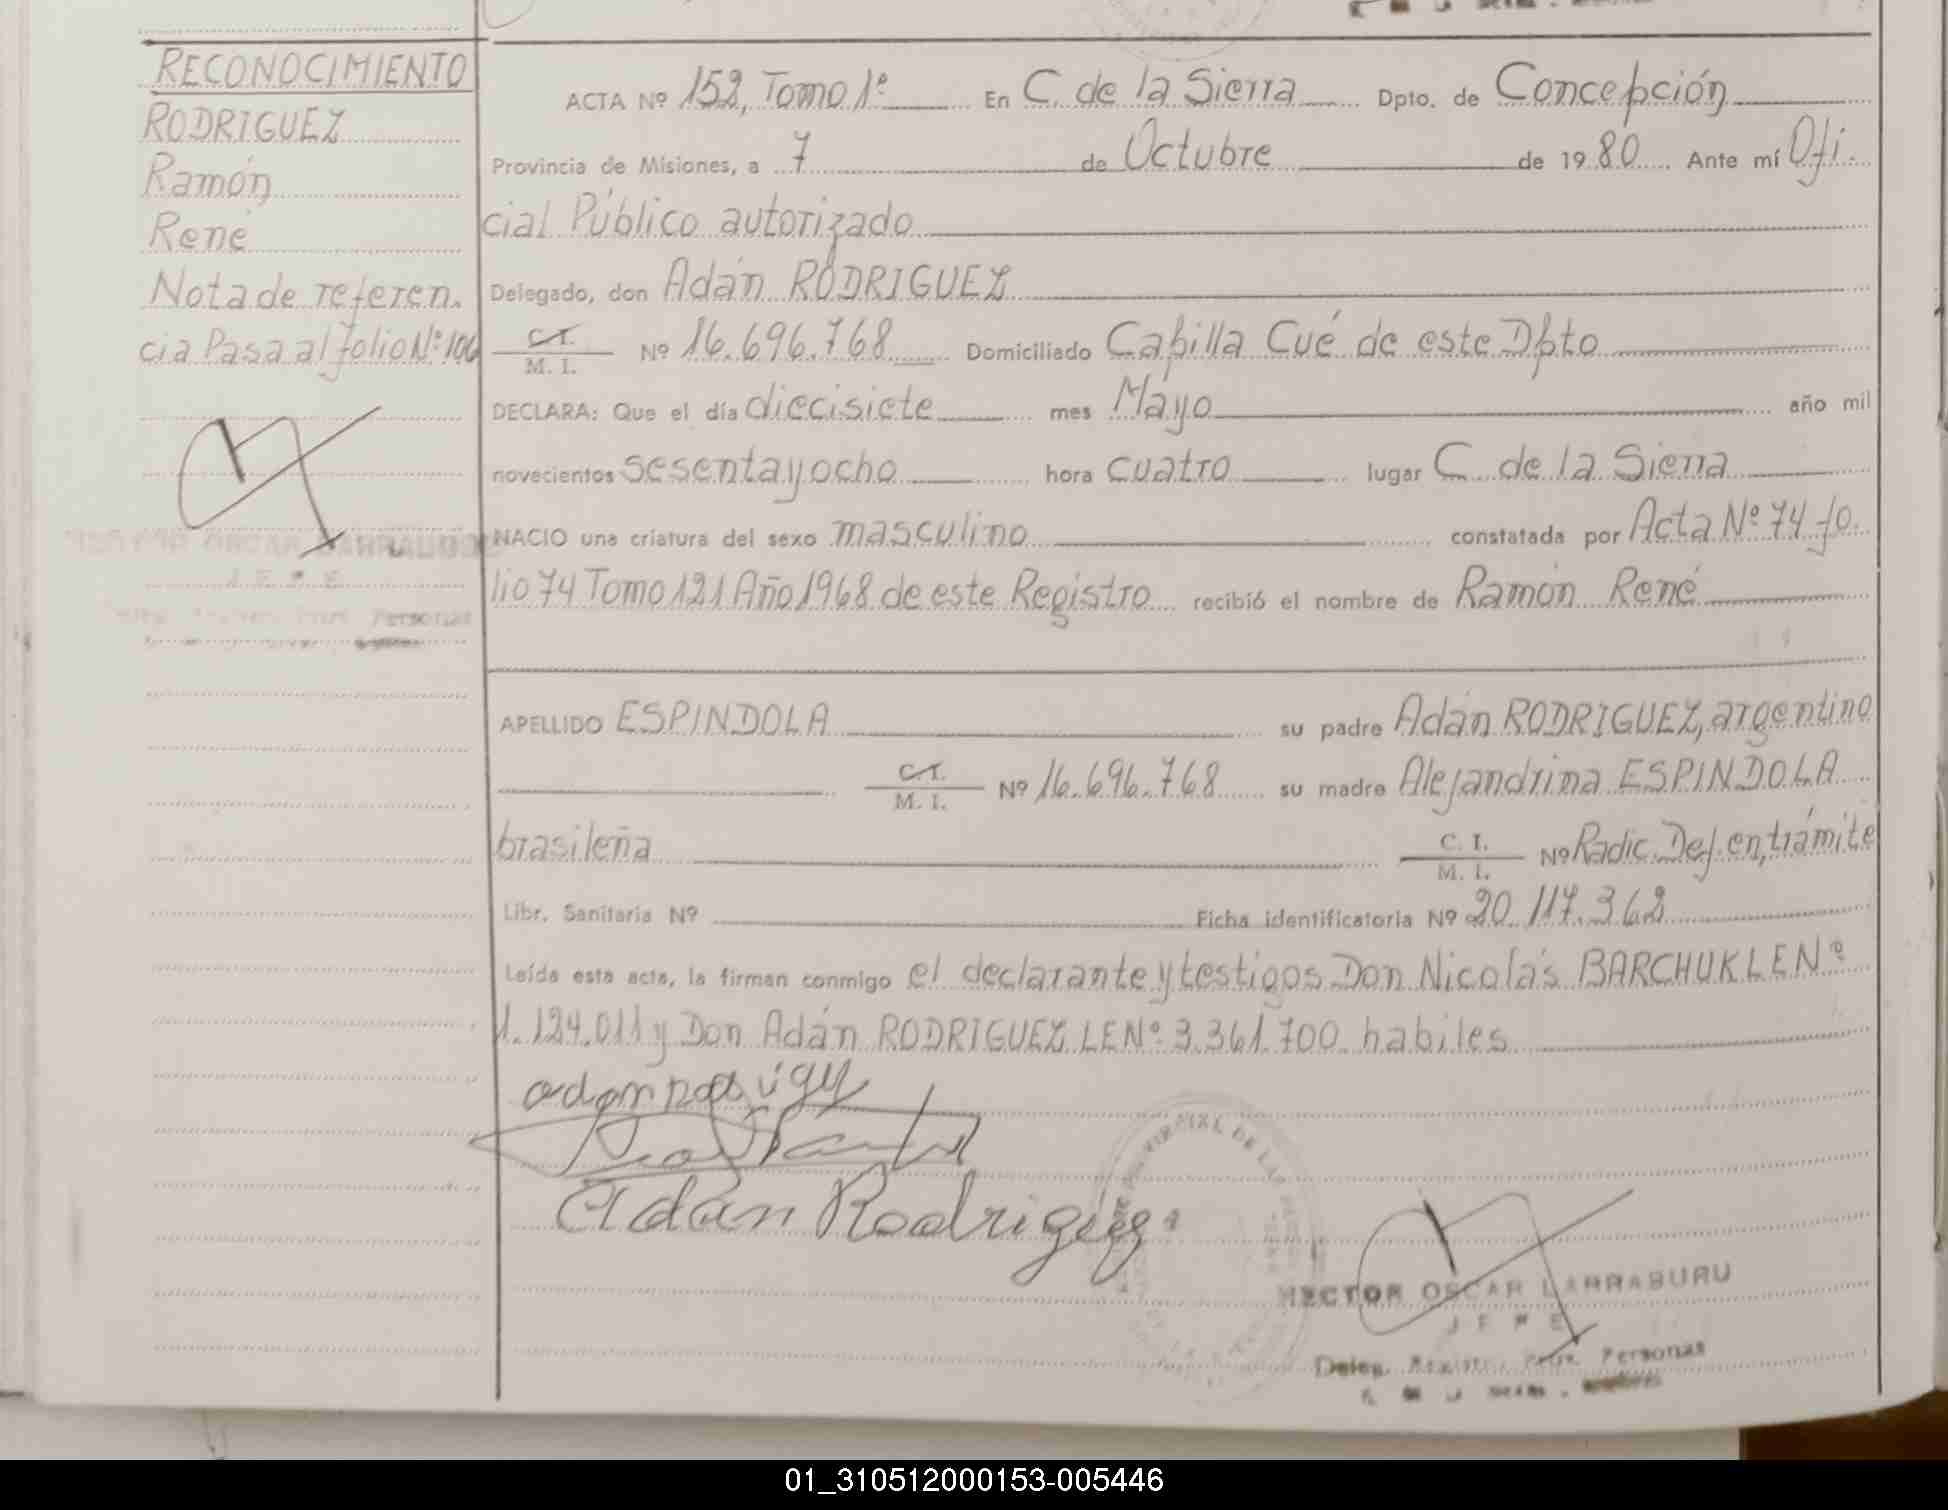 RECONOCIMIENTO
RODRIGUEZ
Ramón
René
Nota de referen.
cia Pasa al folio Nº 106
ACTA Nº 152, Tomo 1º En C. de la Sierra Dpto. de Concepción
Provincia de Misiones, a 7 de Octubre de 1980 Ante mí Ofi.
cial Público autorizado
Delegado, don Adán RODRIGUEZ
C.I.
M. I. Nº 16.696.768 Domiciliado Capilla Cué de este Dpto
DECLARA: Que el día diecisiete mes Mayo año mil
novecientos sesenta y ocho hora cuatro lugar C. de la Sierra
NACIO una criatura del sexo masculino constatada por Acta Nº 74 fo.
lio 74 Tomo 121 Año 1968 de este Registro recibió el nombre de Ramón René
APELLIDO ESPINDOLA su padre Adán RODRIGUEZ, argentino
C.I.
M. I. Nº 16.696.768 su madre Alejandrina ESPINDOLA
brasileña C. I.
M. I. Nº Radic. Def. en trámite
Libr. Sanitaria Nº Ficha identificatoria Nº 20.117.362
Leída esta acta, la firman conmigo el declarante y testigos Don Nicolás BARCHUK LE Nº
1.124.011 y Don Adán RODRIGUEZ LE Nº 3.361.700 habiles
Adán Rodriguez
HECTOR OSCAR LARRABURU
JEFE
Deleg. Registro Prov. Personas
01_310512000153-005446